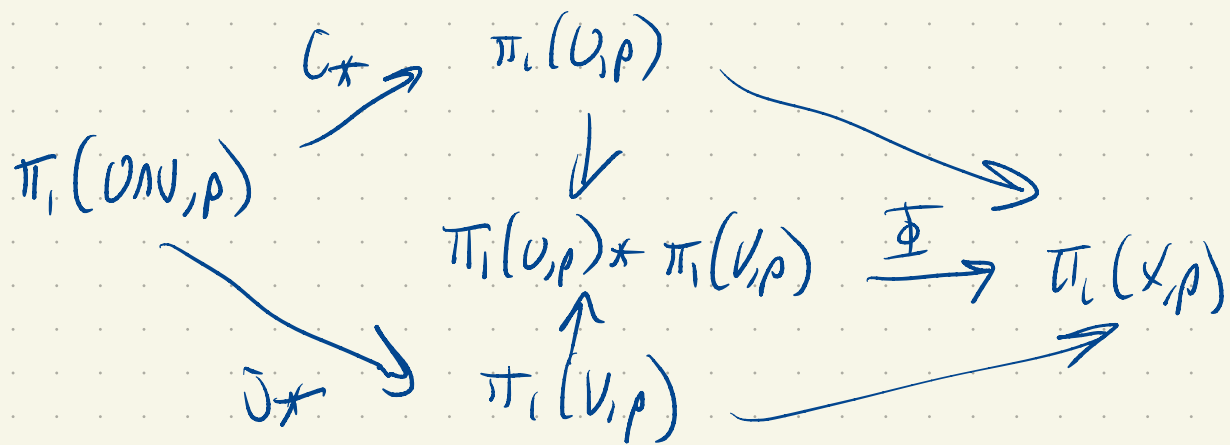 i* π₁(U,p)
π₁(U∩V,p)
π₁(U,p)* π₁(V,p) Φ π₁(X,p)
j* π₁(V,p)